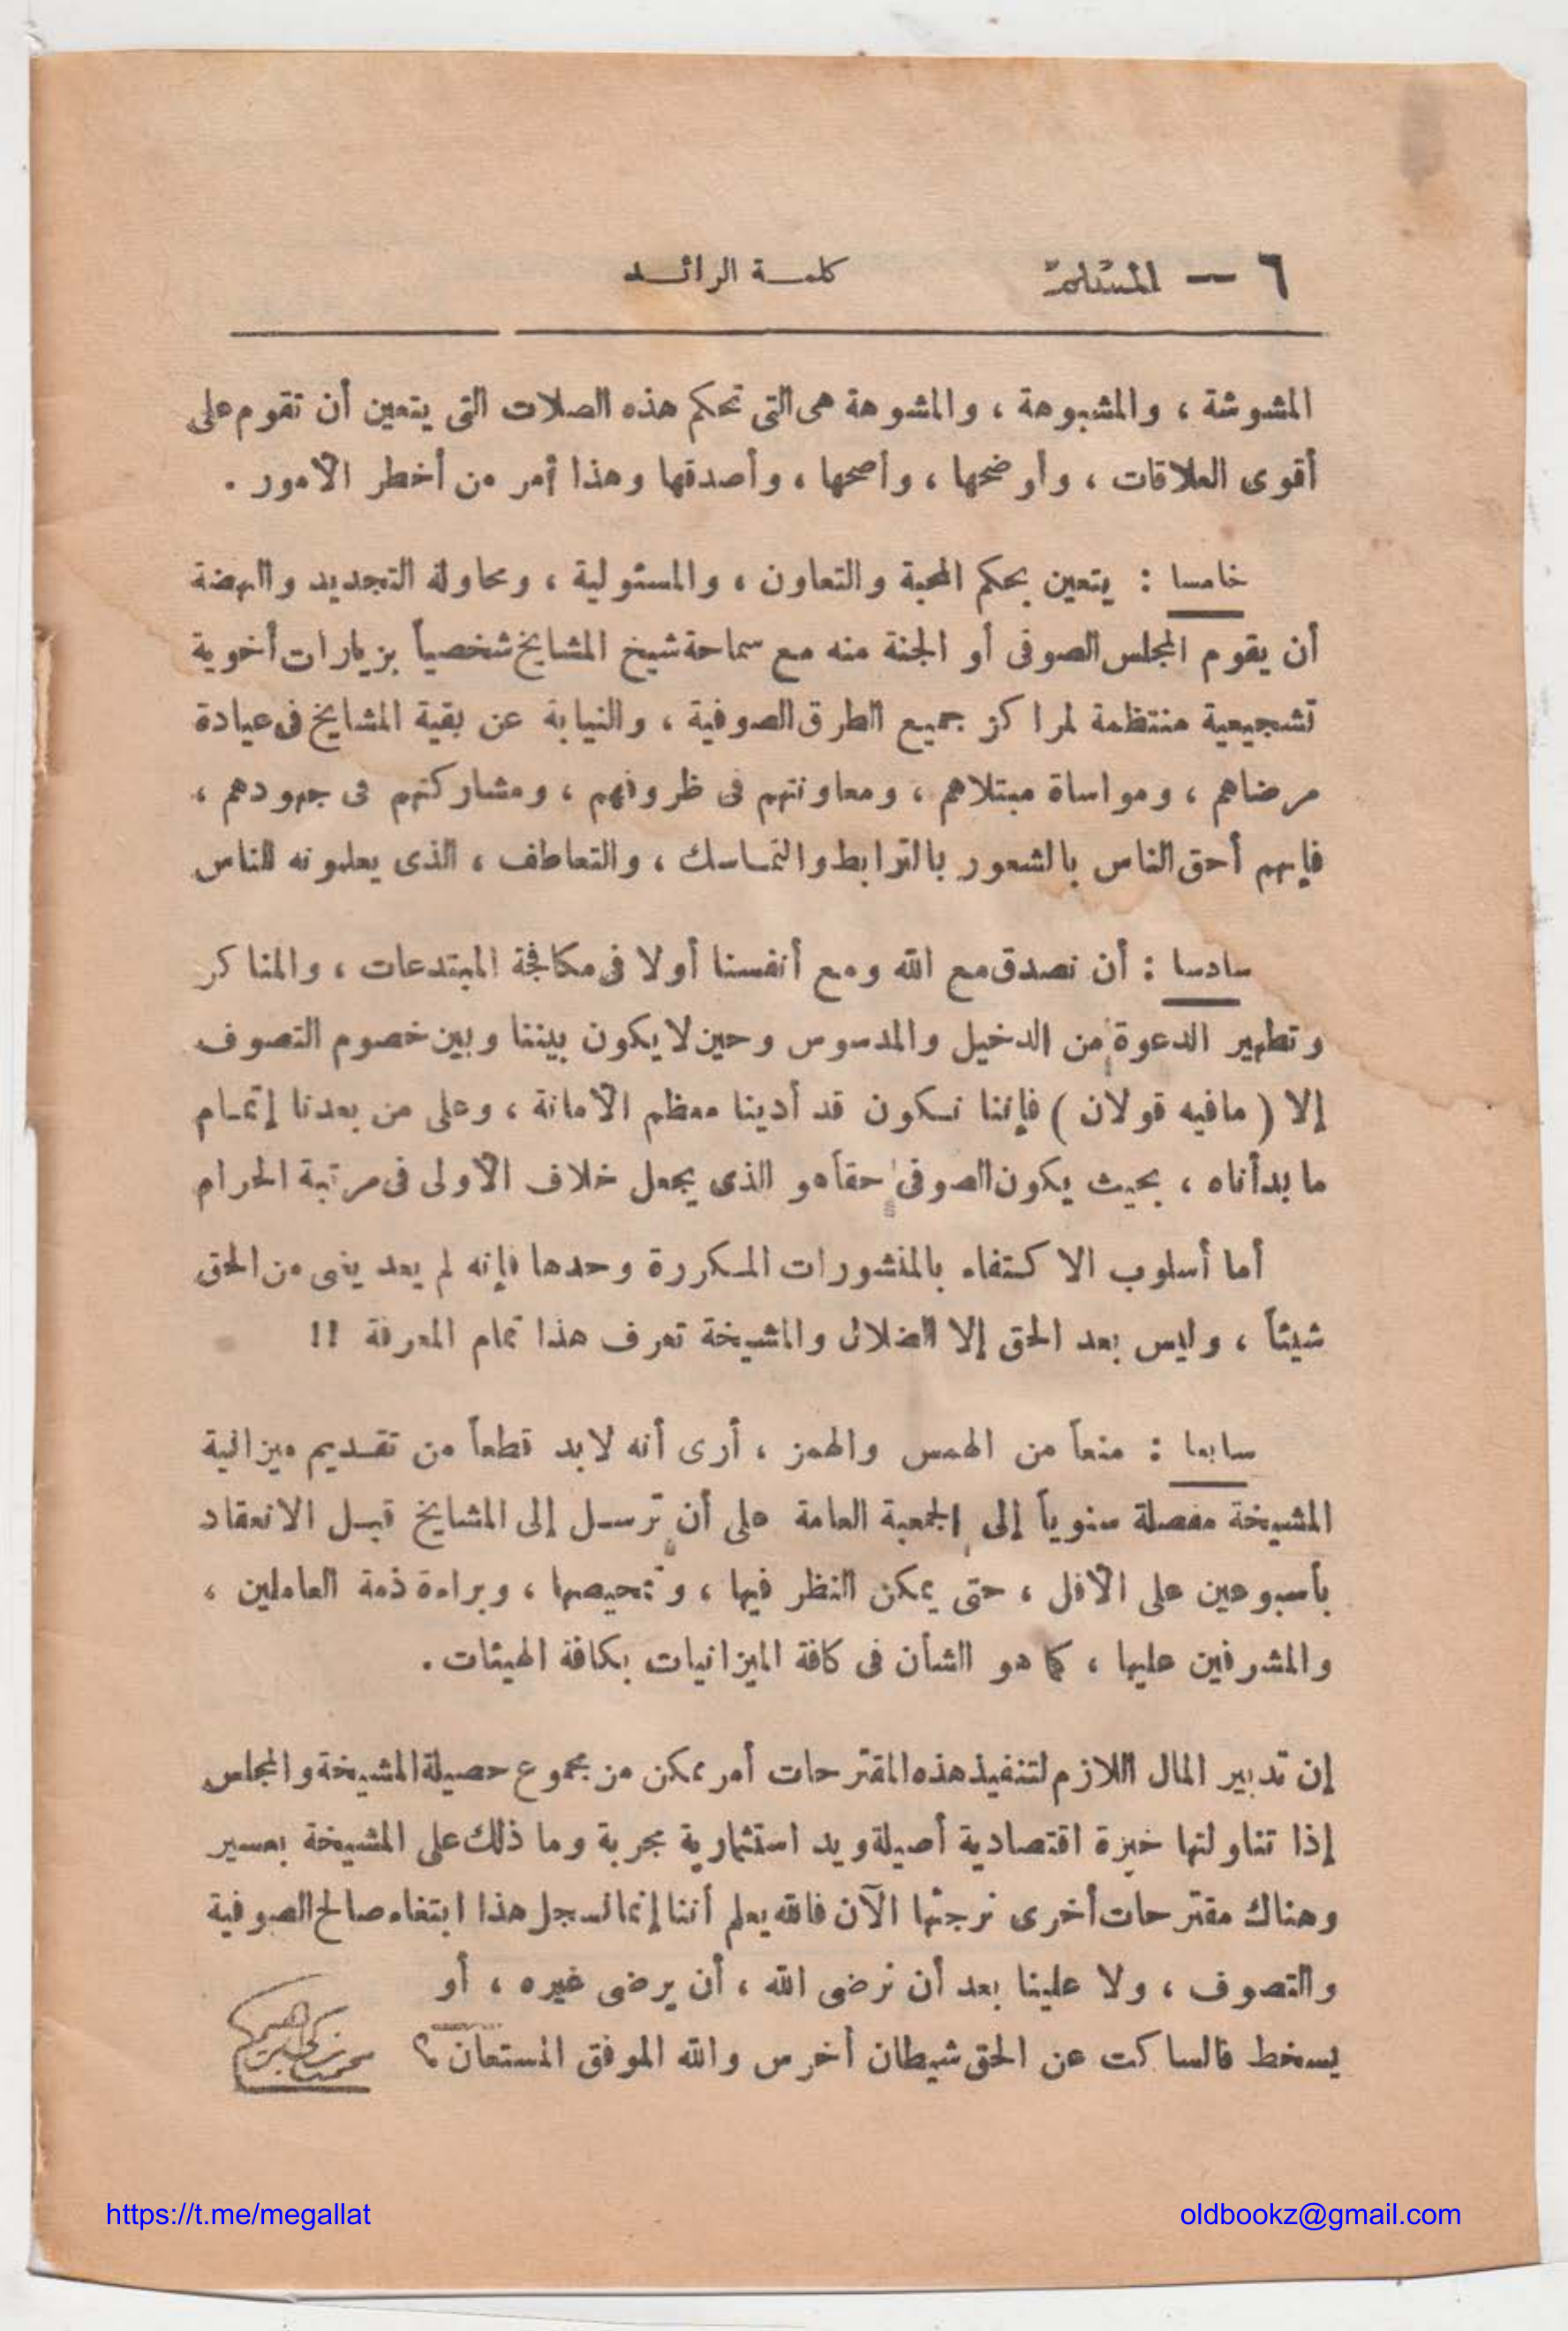 ٦ — المسلم كلمــة الرائــد
المشوشة ، والمشبوهة ، والمشوهة هى التى تحكم هذه الصلات التى يتعين أن تقوم على
أقوى العلاقات ، وأوضحها ، وأصحها ، وأصدقها وهذا أمر من أخطر الأمور .
خامسا : يتعين بحكم المحبة والتعاون ، والمسئولية ، ومحاولة التجديد والنهضة
أن يقوم المجلس الصوفى أو الجنة منه مع سماحة شيخ المشايخ شخصياً بزيارات أخوية
تشجيعية منتظمة لمراكز جميع الطرق الصوفية ، والنيابة عن بقية المشايخ فى عيادة
مرضاهم ، ومواساة مبتلاهم ، ومعاونتهم فى ظروفهم ، ومشاركتهم فى جهودهم ،
فإنهم أحق الناس بالشعور بالترابط والتمــاسك ، والتعاطف ، الذى يعلمونه للناس
سادسا : أن نصدق مع الله ومع أنفسنا أولا فى مكافحة المبتدعات ، والمناكر
وتطهير الدعوة من الدخيل والمدسوس وحين لا يكون بيننا وبين خصوم التصوف
إلا ( مافيه قولان ) فإننا نــكون قد أدينا معظم الأمانة ، وعلى من بعدنا إتمــام
ما بدأناه ، بحيث يكون الصوفى حقاً هو الذى يجعل خلاف الأولى فى مرتبة الحرام
أما أسلوب الاكتفاء بالمنشورات المــكررة وحدها فإنه لم يعد يغنى من الحق
شيئاً ، وليس بعد الحق إلا الضلال والمشيخة تعرف هذا تمام المعرفة !!
سابعا : منعاً من الهمس والهمز ، أرى أنه لابد قطعاً من تقــديم ميزانية
المشيخة مفصلة سنوياً إلى الجمعية العامة على أن ترســل إلى المشايخ قبــل الانعقاد
بأسبوعين على الأقل ، حتى يمكن النظر فيها ، وتمحيصها ، وبراءة ذمة العاملين ،
والمشرفين عليها ، كما هو الشأن فى كافة الميزانيات بكافة الهيئات .
إن تدبير المال اللازم لتنفيذ هذه المقترحات أمر ممكن من مجموع حصيلة المشيخة والمجلس
إذا تناولتها خبرة اقتصادية أصيلة ويد استثمارية مجربة وما ذلك على المشيخة بعسير
وهناك مقترحات أخرى نرجئها الآن فالله يعلم أننا إنما نسجل هذا ابتغاء صالح الصوفية
والتصوف ، ولا علينا بعد أن نرضى الله ، أن يرضى غيره ، أو
يسخط فالساكت عن الحق شيطان أخرس والله الموفق المستعان ؟
محمد زكى إبراهيم
https://t.me/megallat
oldbookz@gmail.com